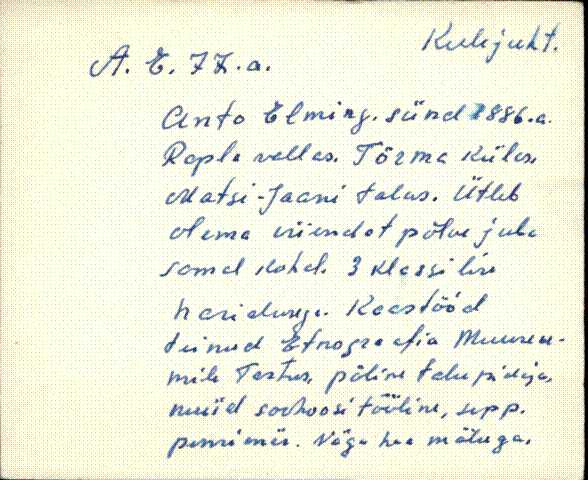 Keelejuht.
A. E. 77.a.
Anto Elming. sünd 1886.a.
Rapla vallas. Tõrma külas,
Matsi-Jaani talus. Ütleb
olema viiendat põlve juba
samal kohal. 3 klassilise
haridusega. Kaastööd
teinud Etnograafia Muuseu-
mile Tartus, põline talupidaja,
nüüd sovhoosi tööline, sepp.
pensionär. Väga hea mäluga.